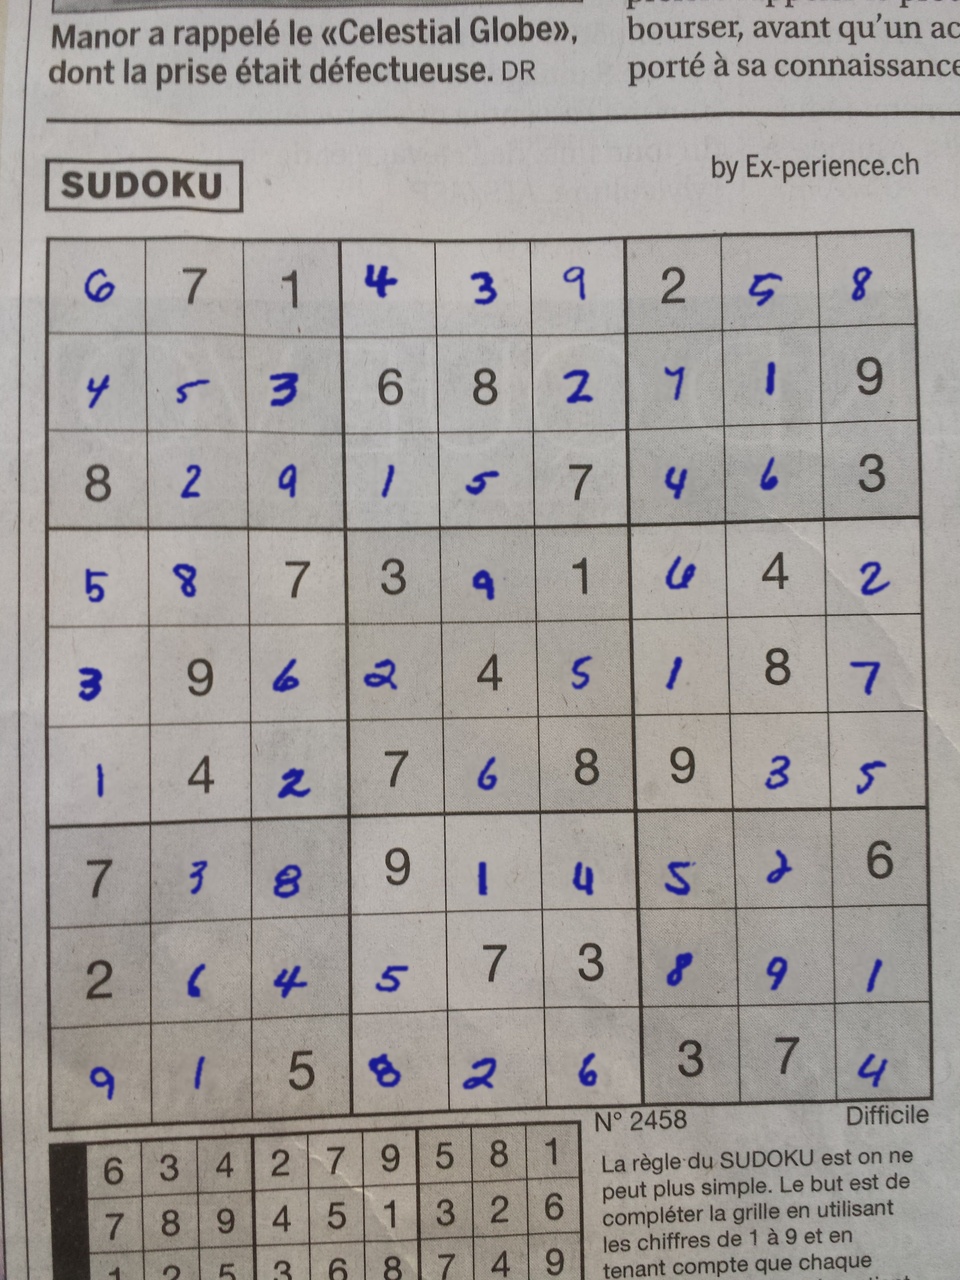 Manor a rappelé le «Celestial Globe»,
dont la prise était défectueuse. DR
bourser, avant qu'un ac
porté à sa connaissance
SUDOKU
by Ex-perience.ch
6 7 1 4 3 9 2 5 8
4 5 3 6 8 2 7 1 9
8 2 9 1 5 7 4 6 3
5 8 7 3 9 1 6 4 2
3 9 6 2 4 5 1 8 7
1 4 2 7 6 8 9 3 5
7 3 8 9 1 4 5 2 6
2 6 4 5 7 3 8 9 1
9 1 5 8 2 6 3 7 4
N° 2458
Difficile
6 3 4 2 7 9 5 8 1
7 8 9 4 5 1 3 2 6
1 2 5 3 6 8 7 4 9
La règle du SUDOKU est on ne
peut plus simple. Le but est de
compléter la grille en utilisant
les chiffres de 1 à 9 et en
tenant compte que chaque